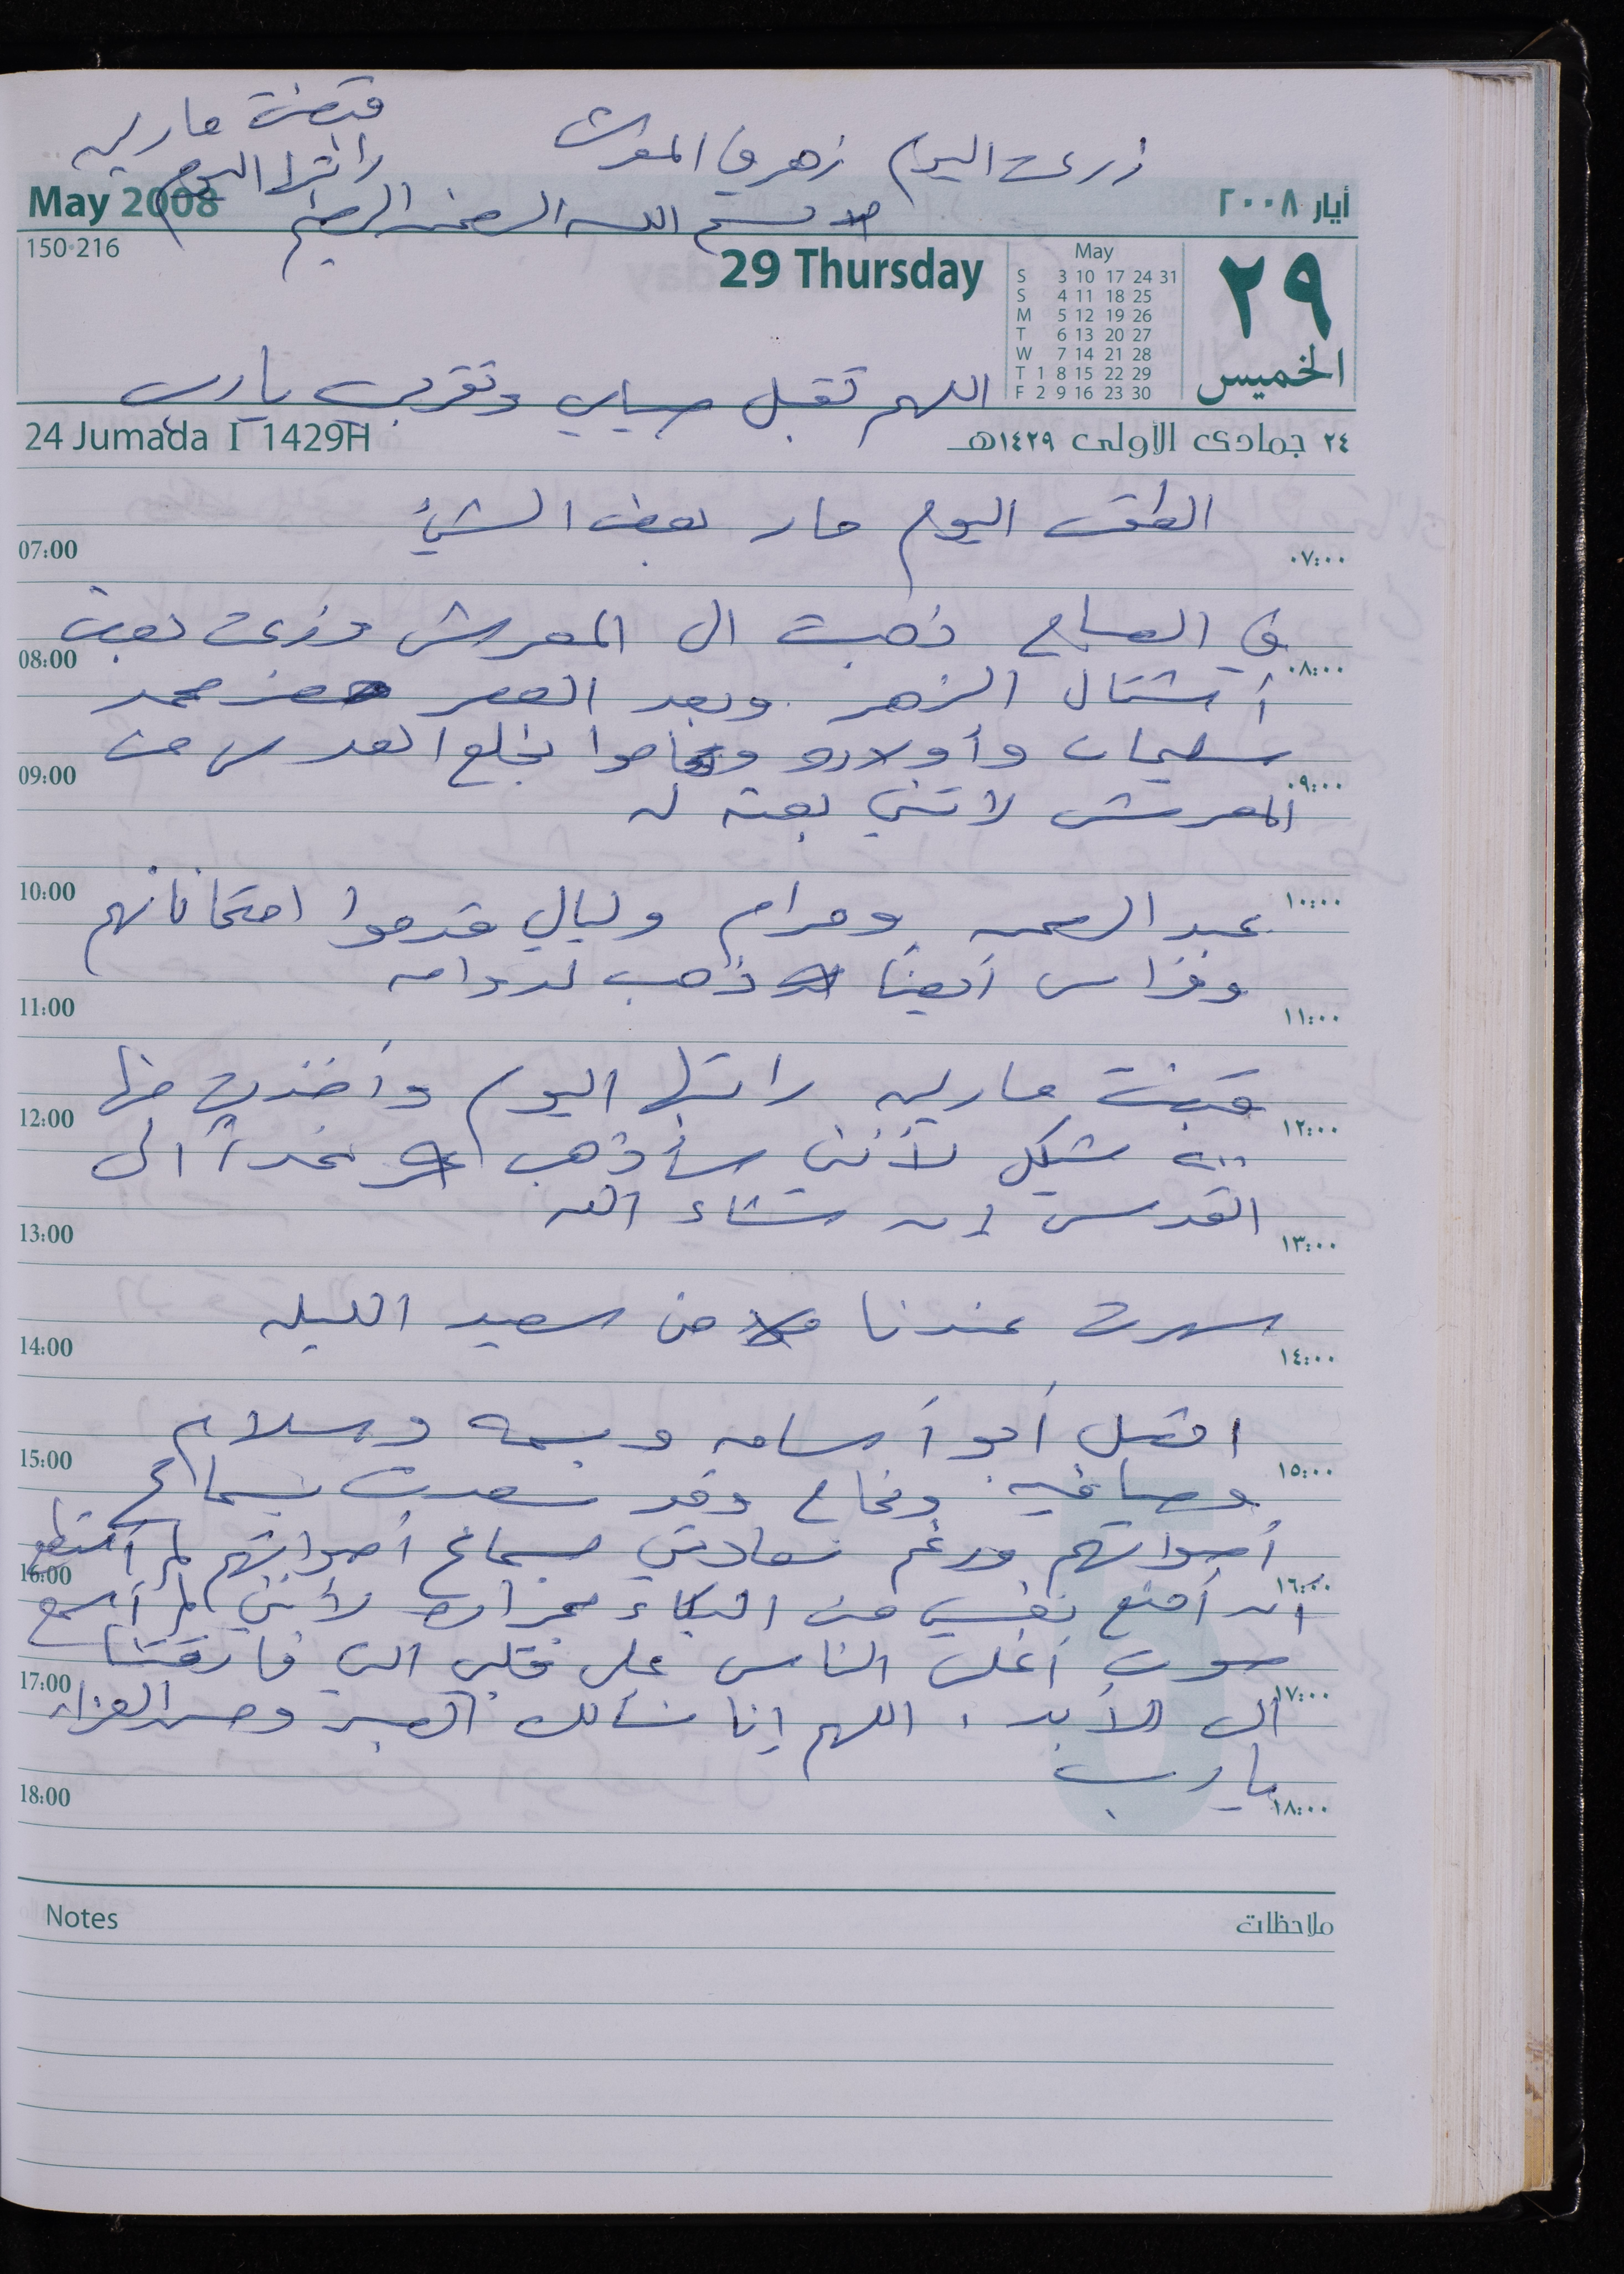 زرعت اليوم زهر في المعرش
قبضت ماريه
راتبها اليوم
بسم الله الرحمن الرحيم
May 2008
أيار ٢٠٠٨
150-216
29 Thursday
May
S 3 10 17 24 31
S 4 11 18 25
M 5 12 19 26
T 6 13 20 27
W 7 14 21 28
T 1 8 15 22 29
F 2 9 16 23 30
٢٩
الخميس
اللهم تقبل صيامي وتقربي يا رب
24 Jumada I 1429H
٢٤ جمادى الأولى ١٤٢٩هـ
الطقس اليوم حار بعض الشيء
07:00 ٠٧:٠٠
في الصباح ذهبت الى المعرش وزرعت بعض
08:00 ٠٨:٠٠
أشتال الزهر وبعد العصر حضر محمد
سليمان وأولاده وقاموا بخلع العدس من
09:00 ٠٩:٠٠
المعرش لانني بعته له
10:00 ١٠:٠٠
عبد الرحمن ومرام وليالي قدموا امتحاناتهم
وفراس أيضا ذهب لدوامه
11:00 ١١:٠٠
قبضت ماريه راتبها اليوم وأخذت منها
12:00 ١٢:٠٠
٢٠٠ شيكل لأنني سأذهب غداً الى
القدس إن شاء الله
13:00 ١٣:٠٠
سهرت عندنا من سعيد الليله
14:00 ١٤:٠٠
اتصل أبو أسامه وبسمه وسلام
15:00 ١٥:٠٠
وصافيه وكفاح وقد سعدت بسماع
أصواتهم ورغم سعادتي بسماع أصواتهم لم أستطع
16:00 ١٦:٠٠
أن أمنع نفسي من البكاء بمراره لأنني لم أسمع
صوت أغلى الناس على قلبي التي فارقتنا
17:00 ١٧:٠٠
الى الأبد، اللهم إنا نسألك الصبر وحسن العزاء
يا رب
18:00 ١٨:٠٠
Notes
ملاحظات